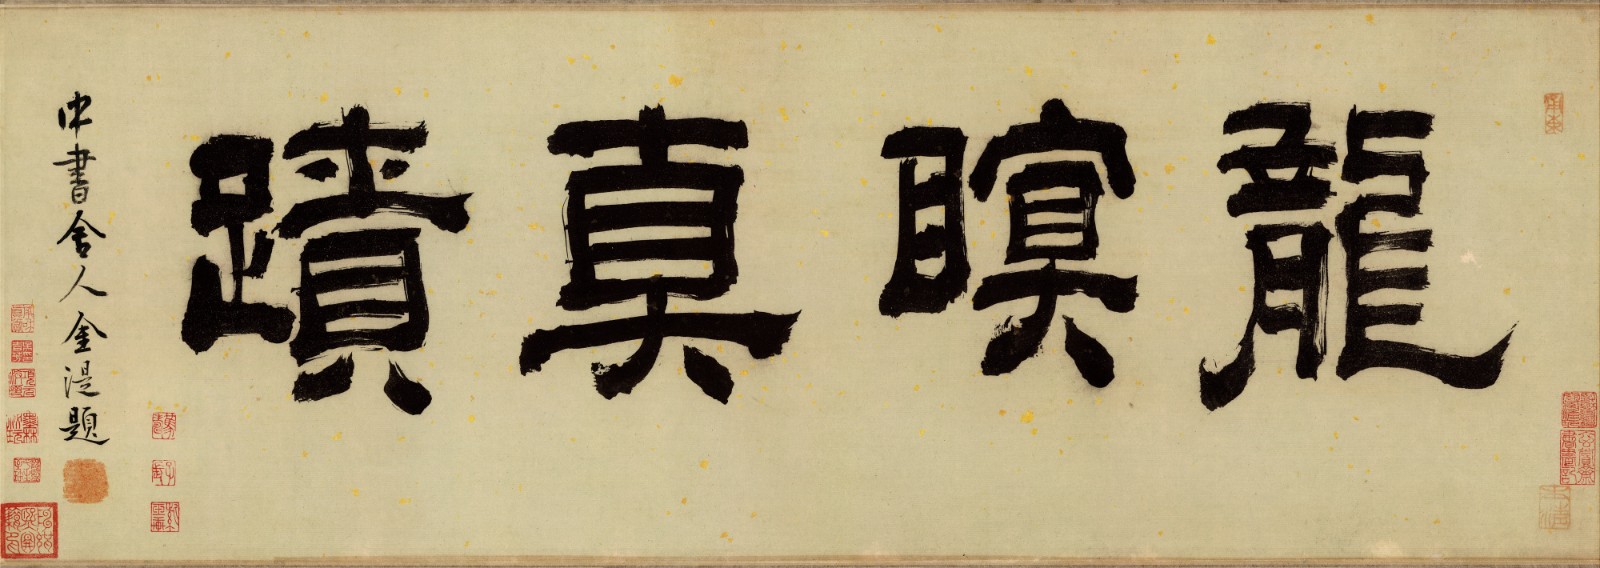 龍瞑真蹟
中書舍人金湜題